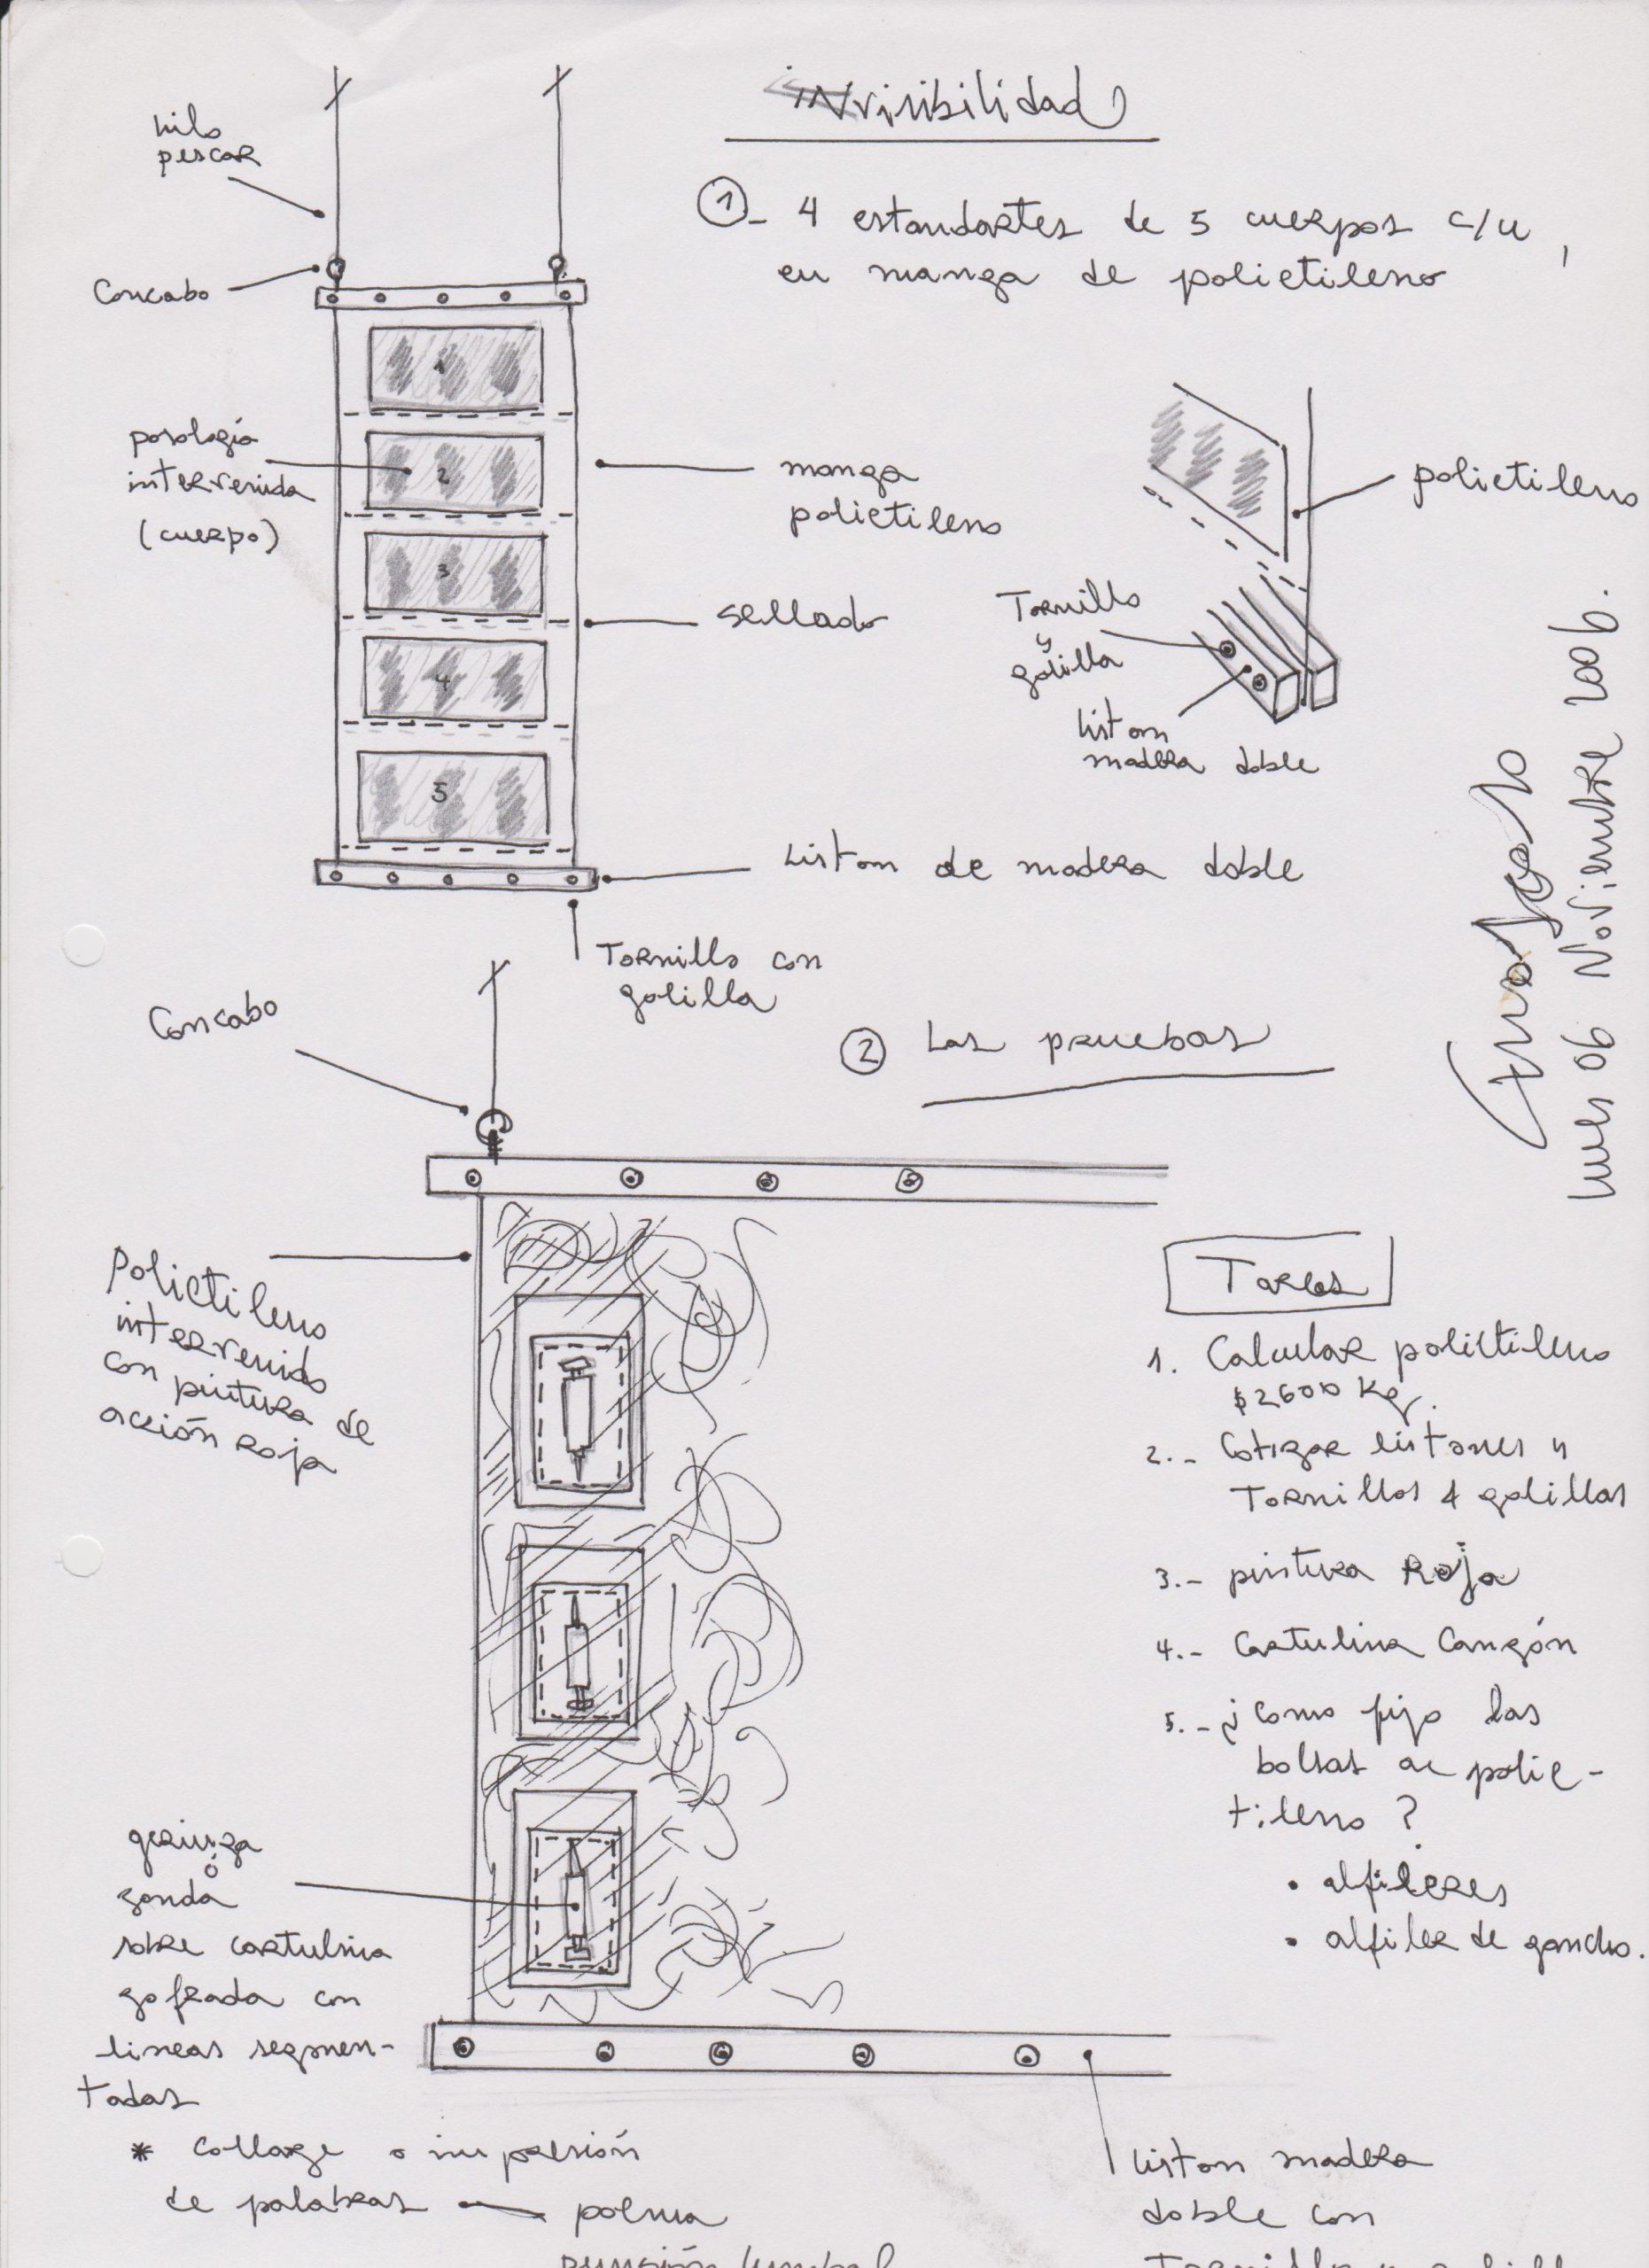 invisibilidad
① - 4 estandartes de 5 cuerpos c/u,
en manga de polietileno
hilo
pescar
Concabo
posología
intervenida
(cuerpo)
1
2
3
4
5
manga
polietileno
sellado
Liston de madera doble
Tornillo con
golilla
polietileno
Tornillo
y
golilla
Liston
madera doble
lunes 06 Noviembre 2006.
② Las pruebas
Concabo
Polietileno
intervenido
con pintura de
acción roja
geringa
ó
zonda
sobre cartulina
gofrada con
lineas segmen-
tadas
* Collage o impresión
de palabras — poema
punción lumbal
Tareas
1. Calcular polietileno
$2600 Kg.
2.- Cotizar listones y
Tornillos y golillas
3.- pintura Roja
4.- Cartulina Canzón
5.- ¿Como fijo las
bolsas de polie-
tileno?
• alfileres
• alfiler de gancho.
Liston madera
doble con